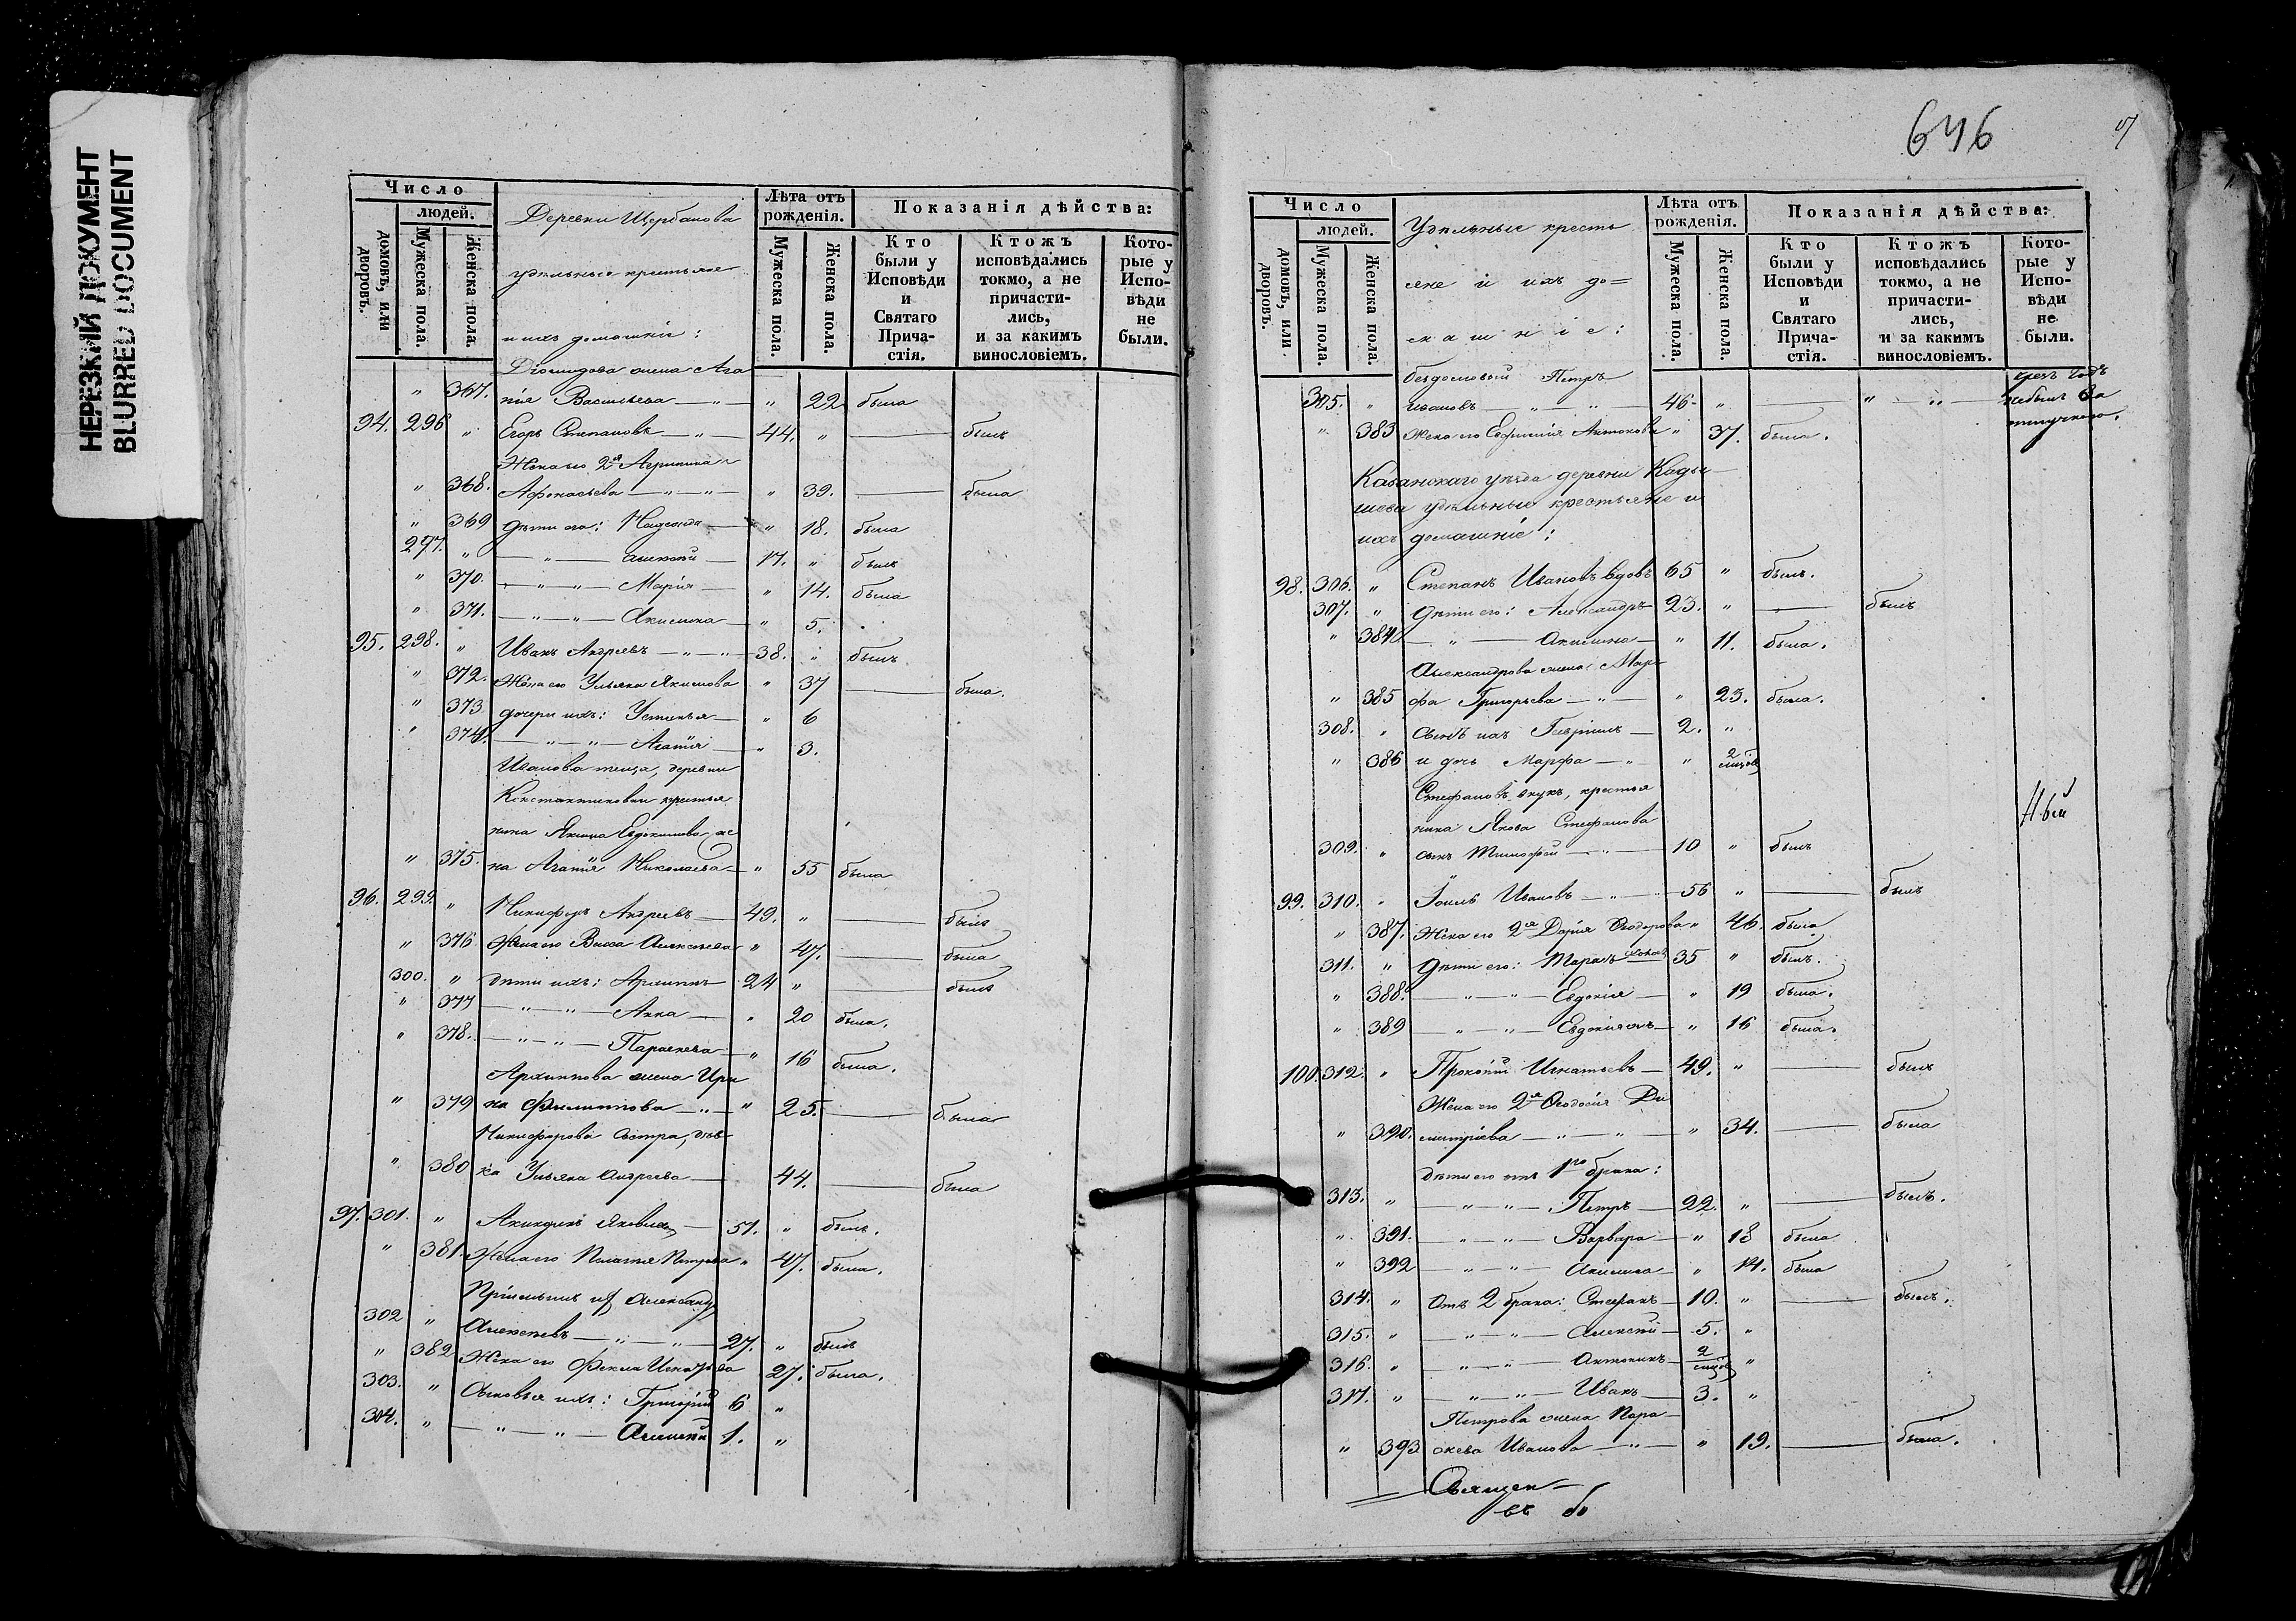 НЕРЕЗКИЙ ДОКУМЕНТ
BLURRED DOCUMENT
Число
людей.
домовъ, или дворовъ.
Мужеска пола.
Женска пола.
Деревни Щербакова
удѣльные крестьяне
и ихъ домашніе:
Лѣта отъ рожденія.
Мужеска пола.
Женска пола.
Показанія дѣйства:
Кто были у Исповѣди и Святаго Прича-стія.
Ктожъ исповѣдались токмо, а не причасти-лись, и за какимъ винословіемъ.
Кото-рые у Испо-вѣди не были.
Діомидова жена Ага
" 367. пія Васильева — " — " 22 была
94. 296 " Егоръ Степановъ — " — 44. " — былъ
Жена его 2я Агрипина
" 368. Афонасьева — " — " — " 39. — была
" 369 дѣти его: Надежда — " 18. была
297. " — " — Алексѣй — 17. " былъ
" 370. — " — " — Марія — " 14. была
" 371. — " — " — Акилина — " 5.
95. 298. " Иванъ Андреевъ — " — " — 38. " былъ
" 372. Жена его Ульяна Якимова " 37 — была.
" 373 дочери ихъ: Устинья — " 6
" 374. — " — " — Агапія — " 3.
Иванова теща, деревни
Константиновки крестья
нина Якима Евдокимова же
" 375. на Агапія Николаева — " 55 была
96. 299. " Никифоръ Андреевъ — 49. " — былъ
" 376 Жена его Васса Алексѣева " 47. — была
300. " дѣти ихъ: Архиппъ — 24 " — былъ
" 377 — " — " — Анна — " 20 была.
" 378. — " — " — Параскева — " 16 была.
Архиппова жена Ири
" 379 на Филиппова — " — " 25. — была
Никифорова сестра, дѣв
" 380 ка Ульяна Андреева — 44. — была
97. 301. " Акиндинъ Яковлевъ — 51. " былъ.
" 381. Жена его Пелагія Петрова " 47. была.
Пріемышъ ихъ Александръ
302 " Алексѣевъ — " — " — 27. " былъ
" 382 Жена его Фекла Игнатьева 27. была.
303. " Сыновья ихъ: Григорій 6 "
304. " — " — " — Алексѣй 1. "
646
Число
людей.
домовъ, или дворовъ.
Мужеска пола.
Женска пола.
Удѣльные кресть
яне и ихъ до=
машніе:
Лѣта отъ рожденія.
Мужеска пола.
Женска пола.
Показанія дѣйства:
Кто были у Исповѣди и Святаго Прича-стія.
Ктожъ исповѣдались токмо, а не причасти-лись, и за какимъ винословіемъ.
Кото-рые у Испо-вѣди не были.
бездомовый Петръ
305. " Ивановъ — " — " — 46 " — " — " — небылъ за отлучкою.
" 383 Жена его Евфимія Антонова " 37. была.
Казанскаго уѣзда деревни Кады
шева удѣльные крестьяне и
ихъ домашніе:
98. 306. " Степанъ Ивановъ вдовъ 65 " былъ.
307. " дѣти его: Александръ 23. " — былъ
" 384 — " — Акилина — " 11. была.
Александрова жена Мар
" 385 фа Григорьева — " — " 23. была.
308. " сынъ ихъ Гавріилъ — 2. "
" 386 и дочь Марфа — " " 2 мѣсяцовъ
Стефановъ внукъ, крестья
нина Якова Стефанова
309. " сынъ Тимофей — " — 10 " былъ
99. 310. " Іоиль Ивановъ — " — 56 " — былъ
" 387. Жена его 2я Дарія Ѳеодорова " 46. была
311. " дѣти его: Тарахъ 35 " былъ.
" 388. — " — " — Евдокія — " 19 была.
" 389 — " — " — Евдокія — " 16 была.
100. 312. " Прокопій Игнатьевъ — 49. " — былъ
Жена его 2я Ѳеодосія Ди
" 390. митріева — " — " — " 34. — была
дѣти его отъ 1го брака:
313. " — " — " — Петръ — 22. " — былъ.
" 391. — " — " — Варвара — " 18 была
" 392 — " — " — Акилина — " 14. была
314. " Отъ 2 брака: Стефанъ — 10. " — былъ.
315. " — " — " — Алексѣй — 5. "
316. " — " — " — Антонинъ — 2 мѣсяцовъ "
317. " — " — " — Иванъ — 3. "
Петрова жена Пара
" 393 скева Иванова — " — " 19. — была.
Священ—